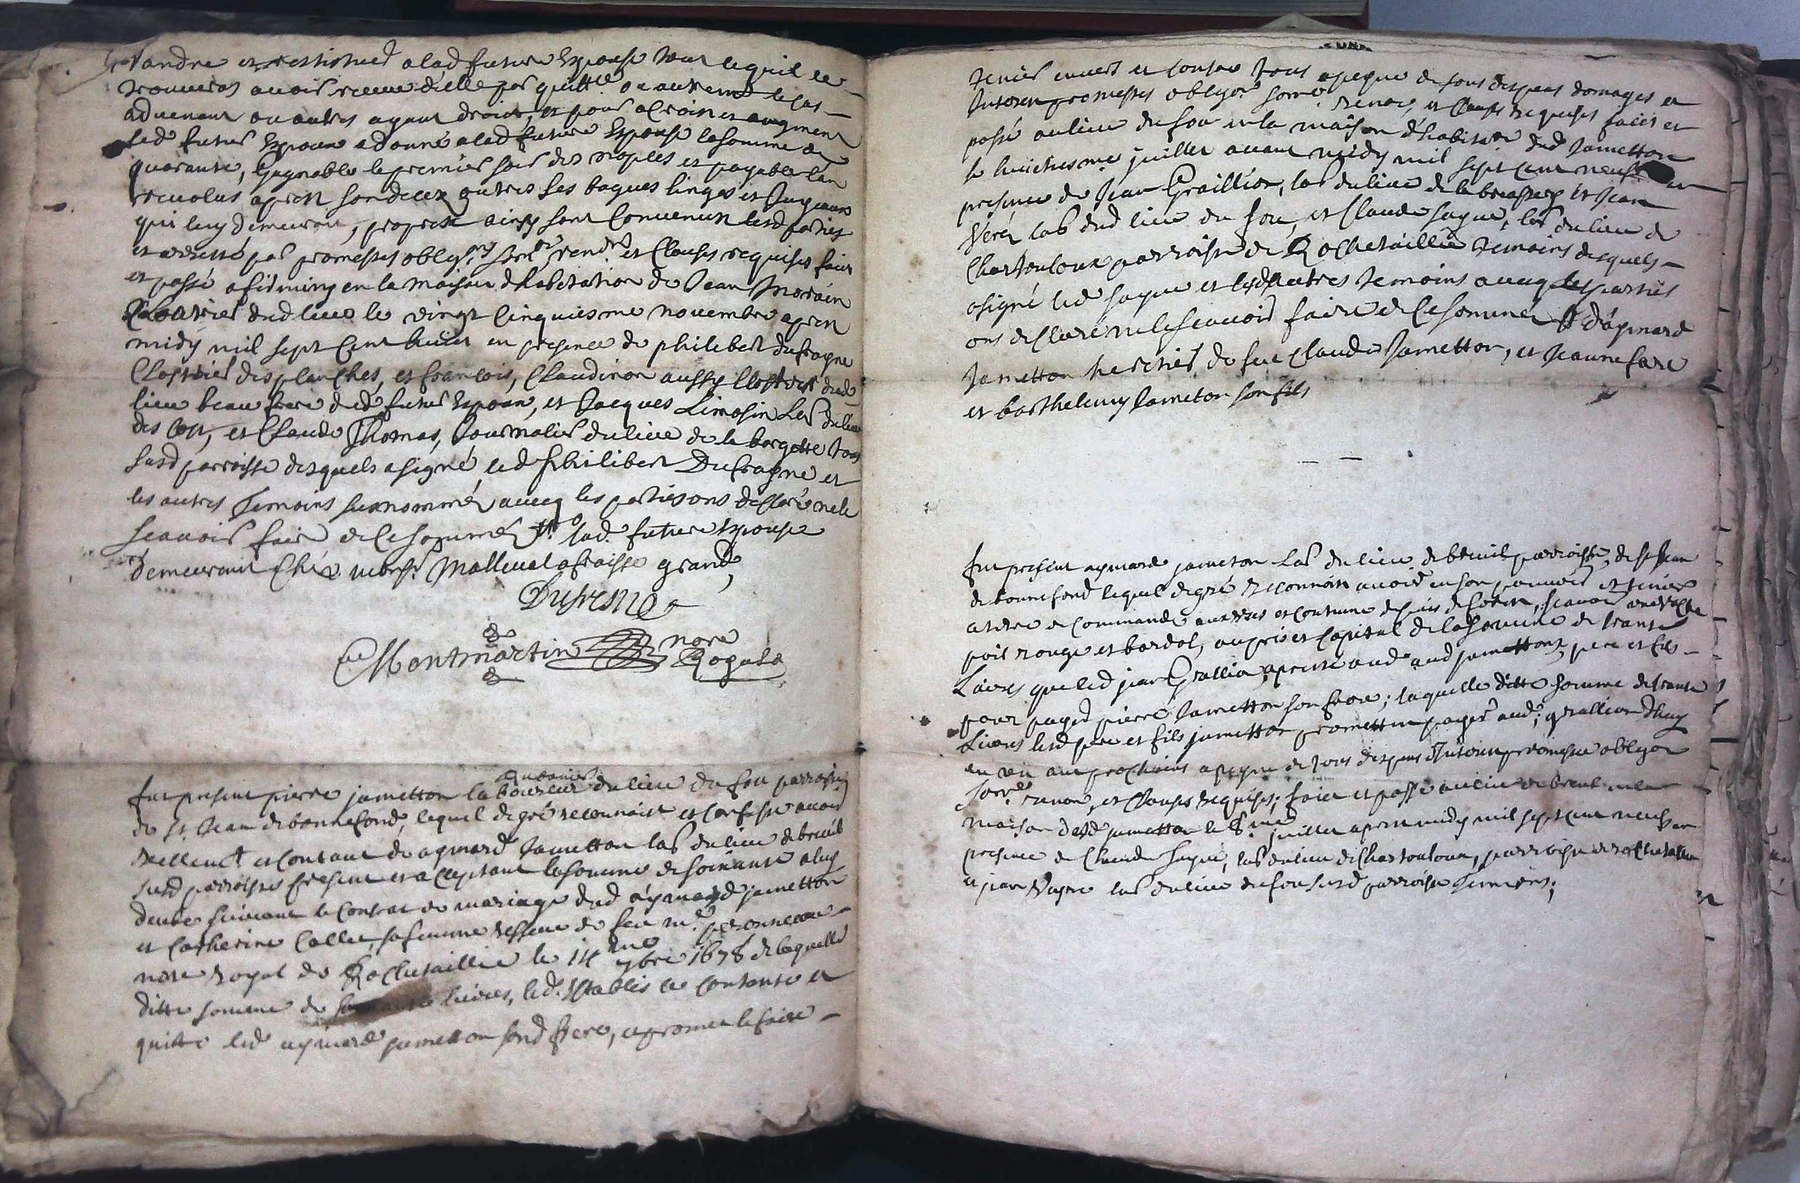 randre et restituer a lad future Espouse tout ce quil se
trouvera avoir receue d'elle par quitte ou autrement le cas
advenant ou autres ayant droict, et pour acroist et augment
led futur Espoux a donné a lad future Espouse la somme de
quarante, gagnable le premier jour des nopces et payable l'an
revolus apres son decez outres ses bagues linges et Juyaux
qui luy demeuront, propres ainsy sont Convenus lesd parties
et arresté par promesses oblig.ons et Clauses requises fait
et passé a firminy en la maison d'habitation de Jean Morain
dud lieu le vingt Cinquiesme novembre apres
midy mil sept Cent huict en presence de philibert dufragne
des planches, et francois, Claudinon aussy dud
lieu beau frere dud futur Espoux, et Jacques Limosin Lab du lieu
des et Claude Thomas, Journalier du lieu de la bargette tous
susd parroisse desquels a signé led philibert Dufragne et
les autres Temoins susnommés avecq les parties ons declaré ne le
scavoir faire de ce sommés lad. future Espouse
demeurant Chés Malleval a fraisse grand,
Dufresne
Montmartin nore
Royale
fut present pierre jametton laboureur du lieu du fou parroisse
de St Jean de bonnefond, lequel de gré reconnoist et confesse avoir
et contant de aymard Jametton lab du lieu de breuil
susd parroisse present et acceptant la somme de soixante a luy
deube suivant le Contrat de mariage dud aymard jametton
et Catherine Collet sa femme de feu m.e peronneau
nore Royal de Rochetaillié le 14 me 9bre 1678 de laquelle
ditte somme de livres, led. Establis se contante et
quitte led aymard jametton sond frere, et promet le faire
tenir envers et contre tous a peyne de tous despens domages et
Interets promesses obligon renonc et Clauses requises faict et
passé au lieu du fou en la maison d'habitaon dud Jametton
le huictiesme juillet avant midy mil sept cent neuf en
presence de Jean Graillion, lab du lieu de la et Jean
lab dud lieu du fou, et Claude sague, lab du lieu de
Chartouloux parroisse de Rochetaillié temoins desquels
a signé led sague et lesd autres temoins avecq les parties
ons declaré ne le scavoir faire de ce sommés d'aymard
Jametton heritier de feu Claude Jametton, et Jeanne faure
et barthelemy Jametton son fils
fut present aymard jametton Lab du lieu de breuil parroisse de St Jean
de bonnefond lequel de gré reconnoit avoir en son pouvoir et tenir
a titre de Commande aux us et coutume du pais de forest, scavoir une vache
poil rouge et bardel, au pris et Capital de la somme de trante
Livres que led jean Grallion a presté aud aud jametton, pere et fils
pour payer pierre Jametton son frere; laquelle ditte somme de trante
Livres lesd pere et fils jametton promettent payer aud; grallion d'huy
en un an prochains a peyne de tous despens Interets promesse obligon
renon, et Clauses requises; faict et passé au lieu de breuil en la
maison dud jametton le 8 me juillet apres midy mil sept cent neuf en
presence de Claude sague, lab du lieu de Chartouloux, parroisse de rochetaillié
et jean lab du lieu du fou susd parroisse Temoins;